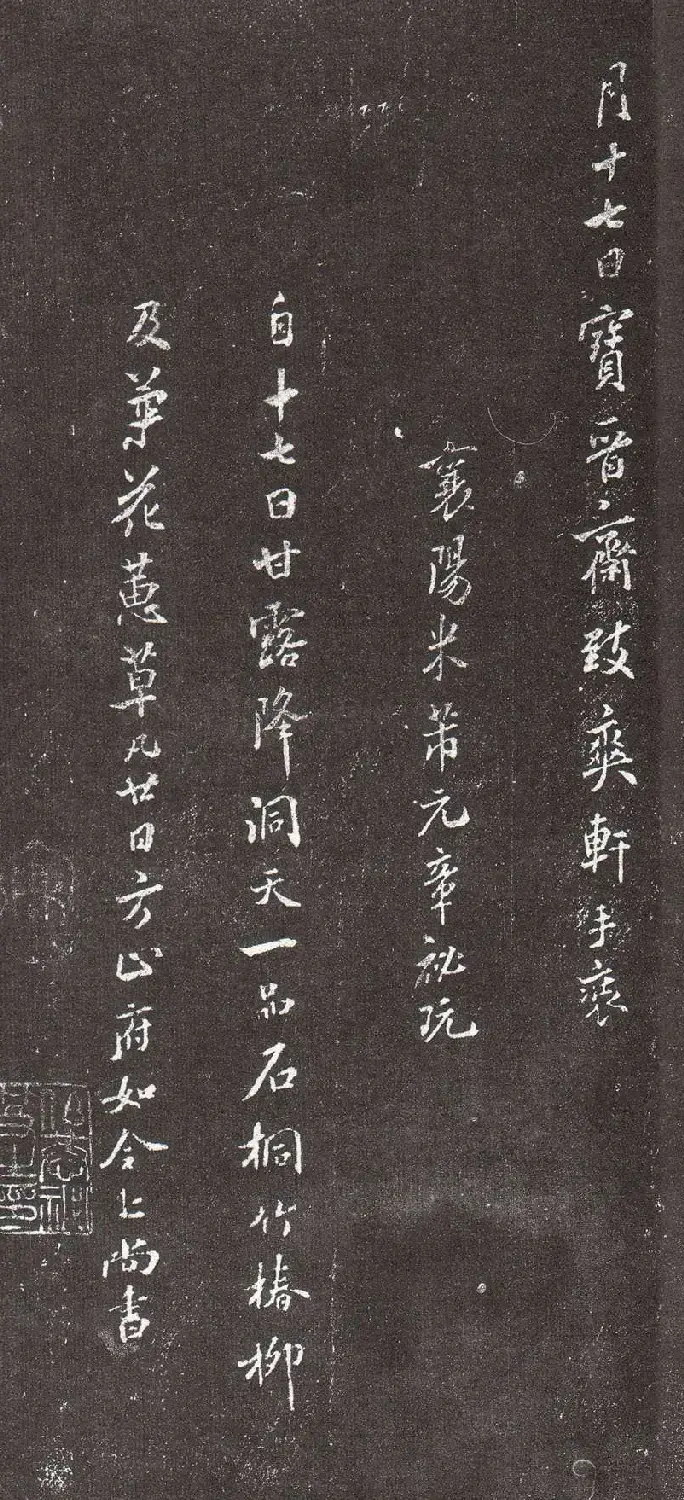 月十七日寶晉齋致爽軒手裝
襄陽米芾元章祕玩
自十七日甘露降洞天一品石桐竹椿柳
及葉花蕙草凡廿日方止府如令上尚書